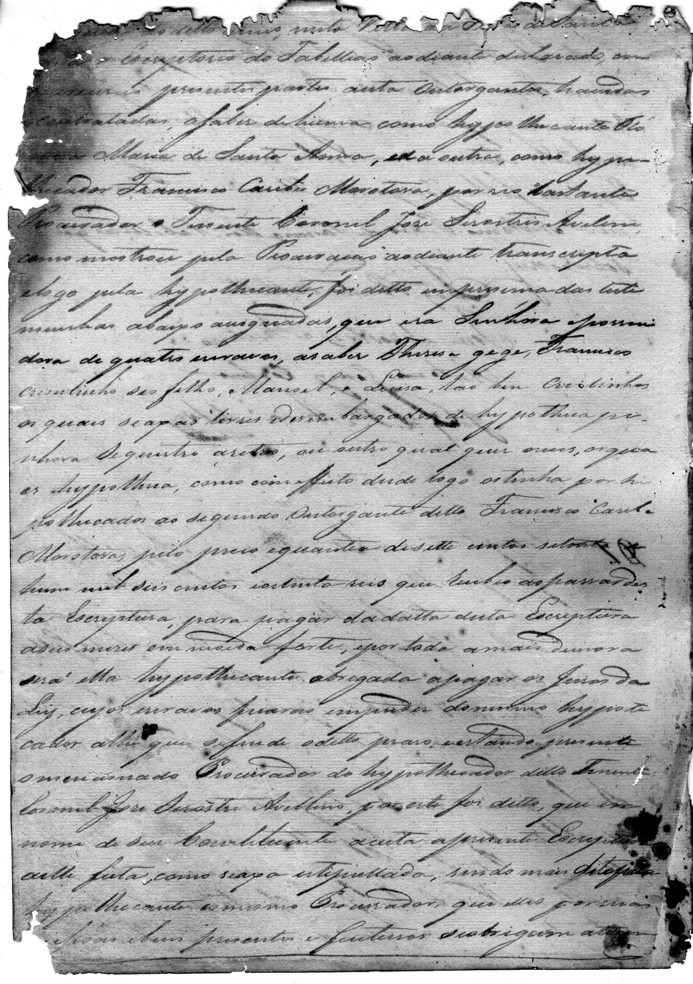 do dito anno, nesta Villa da
Escriptorio do Tabelliaõ aodiante declarado, com
presentes partes aesta Outorgantes, havidas
econtratadas, asaber dehuma como hypothecante
Maria de Santa Anna, eda outra, como hypo-
thecador Francisco Caribé Morotova, por seo bastante
Procurador o Tenente Coronel José Sesostris Avelino
como mostrou pela Procuraçaõ aodiante transcripta
elogo pela hypothecante, foi ditto em presença das teste
munhas abaixo assignadas, que era Senhora epossui
dora de quatro escravos, asaber Theresa gege, Francisco
creoulinho seo filho, Manoel, e Luisa, taõ bem creolinhos
os quais livres edesembargados de hypotheca pe-
nhora sequestro aresto, ou outro qual quer onus, os
es hypotheca, como comeffeito desde logo ostinha por hi
pothecados ao segundo Outorgante ditto Francisco Caribé
Morotova, pelo preço equantia desette centos setenta
hum mil seis centos eoitenta reis que recebeo aopassar des
ta Escriptura, para pagar dadatta desta Escriptura
aseis meses em moeda forte, epor toda amais demora
será ella hypothecante obrigada apagar os Juros da
Ley, cujos escravos ficaraõ empoder domesmo hypote
cador athé que sefinde oditto praso, eestando presente
omencionado Procurador do hypothecador ditto Tenente
Coronel José Sesostris Avellino, por este foi ditto, que em
nome de seu Constituinte aceita apresente Escriptura
aelle feita, como seaxa estipullada, sendo mais dito pela
hypothecante eomesmo Procurador, que
bens presentes e futuros seobrigam